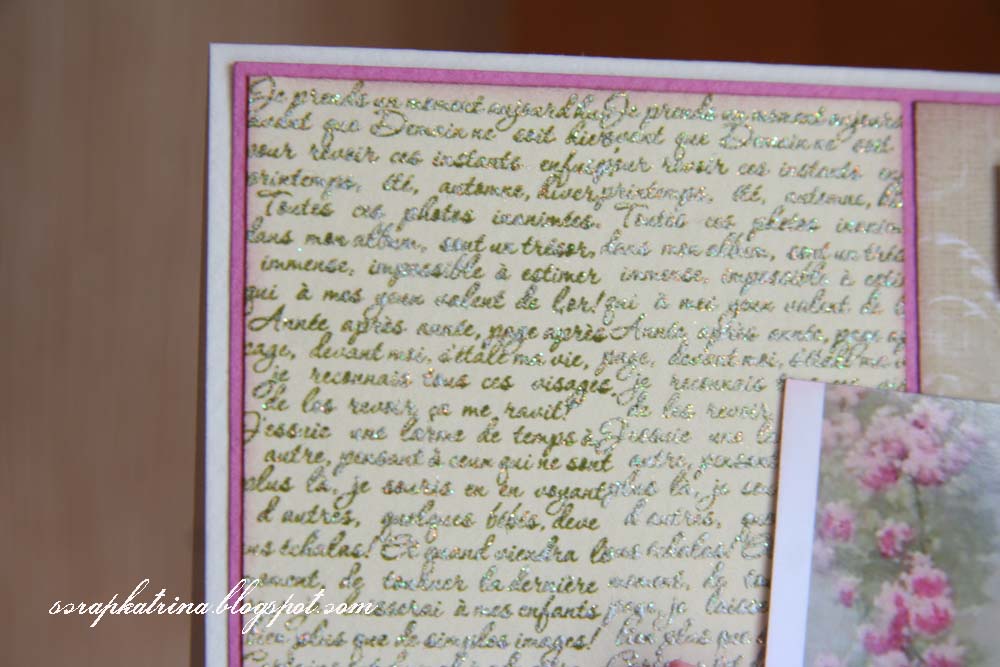 Je prends un moment aujourd'hui Je prends un moment aujourd
avant que Demain ne soit hier avant que Demain ne soit
pour revoir ces instants enfuis pour revoir ces instants en
printemps, été, automne, hiver, printemps, été, automne, hi
Toutes ces photos inanimées. Toutes ces photos inanim
dans mon album, sont un trésor, dans mon album, sont un trés
immense, impossible à estimer immense, impossible à esti
qui à mes yeux valent de l'or! qui à mes yeux valent de l
Année, après année, page après Année, après année, page a
page, devant moi, s'étale ma vie, page, devant moi, s'étale ma
je reconnais tous ces visages. je reconnais
de les revoir, ça me ravit! de les revoir
J'essuie une larme de temps à J'essuie une la
autre, pensant à ceux qui ne sont autre, pensant
plus là, je souris en en voyant plus là, je sou
d'autres, quelques bébés, deve d'autres, que
us échalas! Et quand viendra l us échalas! E
moment, de tourner la dernière moment, de to
serai à mes enfants page, je laisse
rien plus que de simples images! Rien plus que
scrapkatrina.blogspot.com